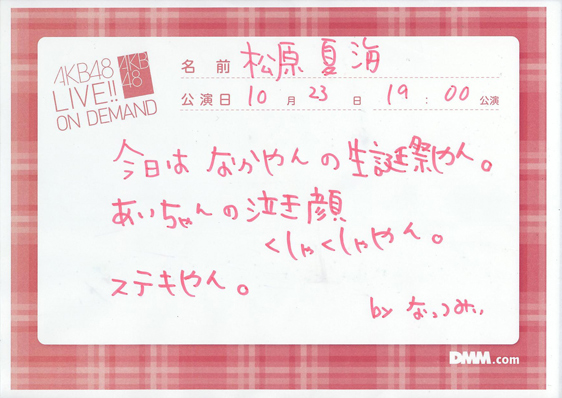 AKB48
LIVE!!
ON DEMAND
AKB
48
名前 松原夏海
公演日 10月23日 19:00公演
今日は なかやんの生誕祭やん。
あいちゃんの泣き顔
くしゃくしゃやん。
ステキやん。
by なっつみぃ
DMM.com